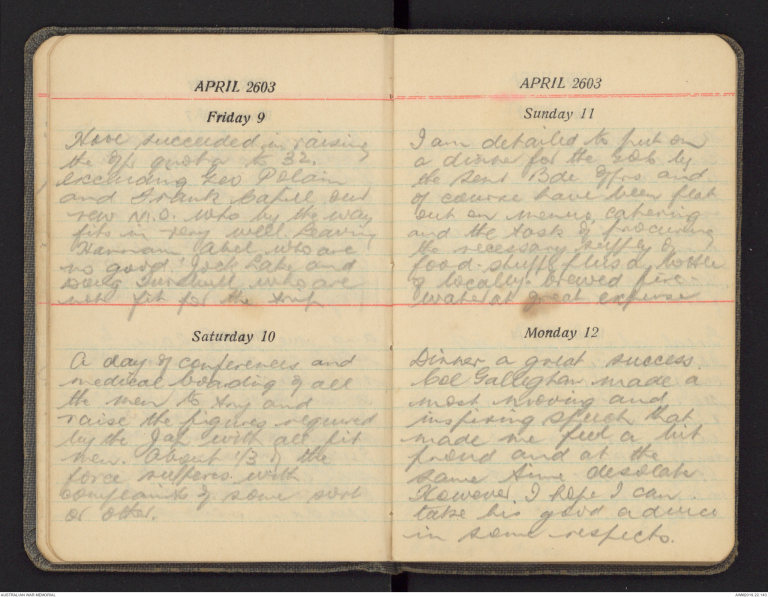 APRIL 2603
Friday 9
Have succeeded in raising
the quota to 32.
excluding Geo Polain
and Frank Cahill our
new M.O. who by the way
fits in very well. Leaving
Hannam Abel who are
no good Jock Lake and
who are
not fit for the trip
Saturday 10
A day of conferences and
medical boarding of all
the men to try and
raise the figures required
by the Jap with all fit
men. About 1/3 of the
force suffers with
complaints of some sort
or other.
APRIL 2603
Sunday 11
I am detailed to put on
a dinner for the by
the Bde Offrs and
of course have been flat
out on menus, catering
and the task of procuring
the necessary supply of
food stuffs plus a bottle
of locally brewed fire
water at great expense
Monday 12
Dinner a great success.
Col Galleghan made a
most moving and
inspiring speech that
made me feel a bit
proud and at the
same time desolate
However, I hope I can
take his good advice
in some respects.
AUSTRALIAN WAR MEMORIAL